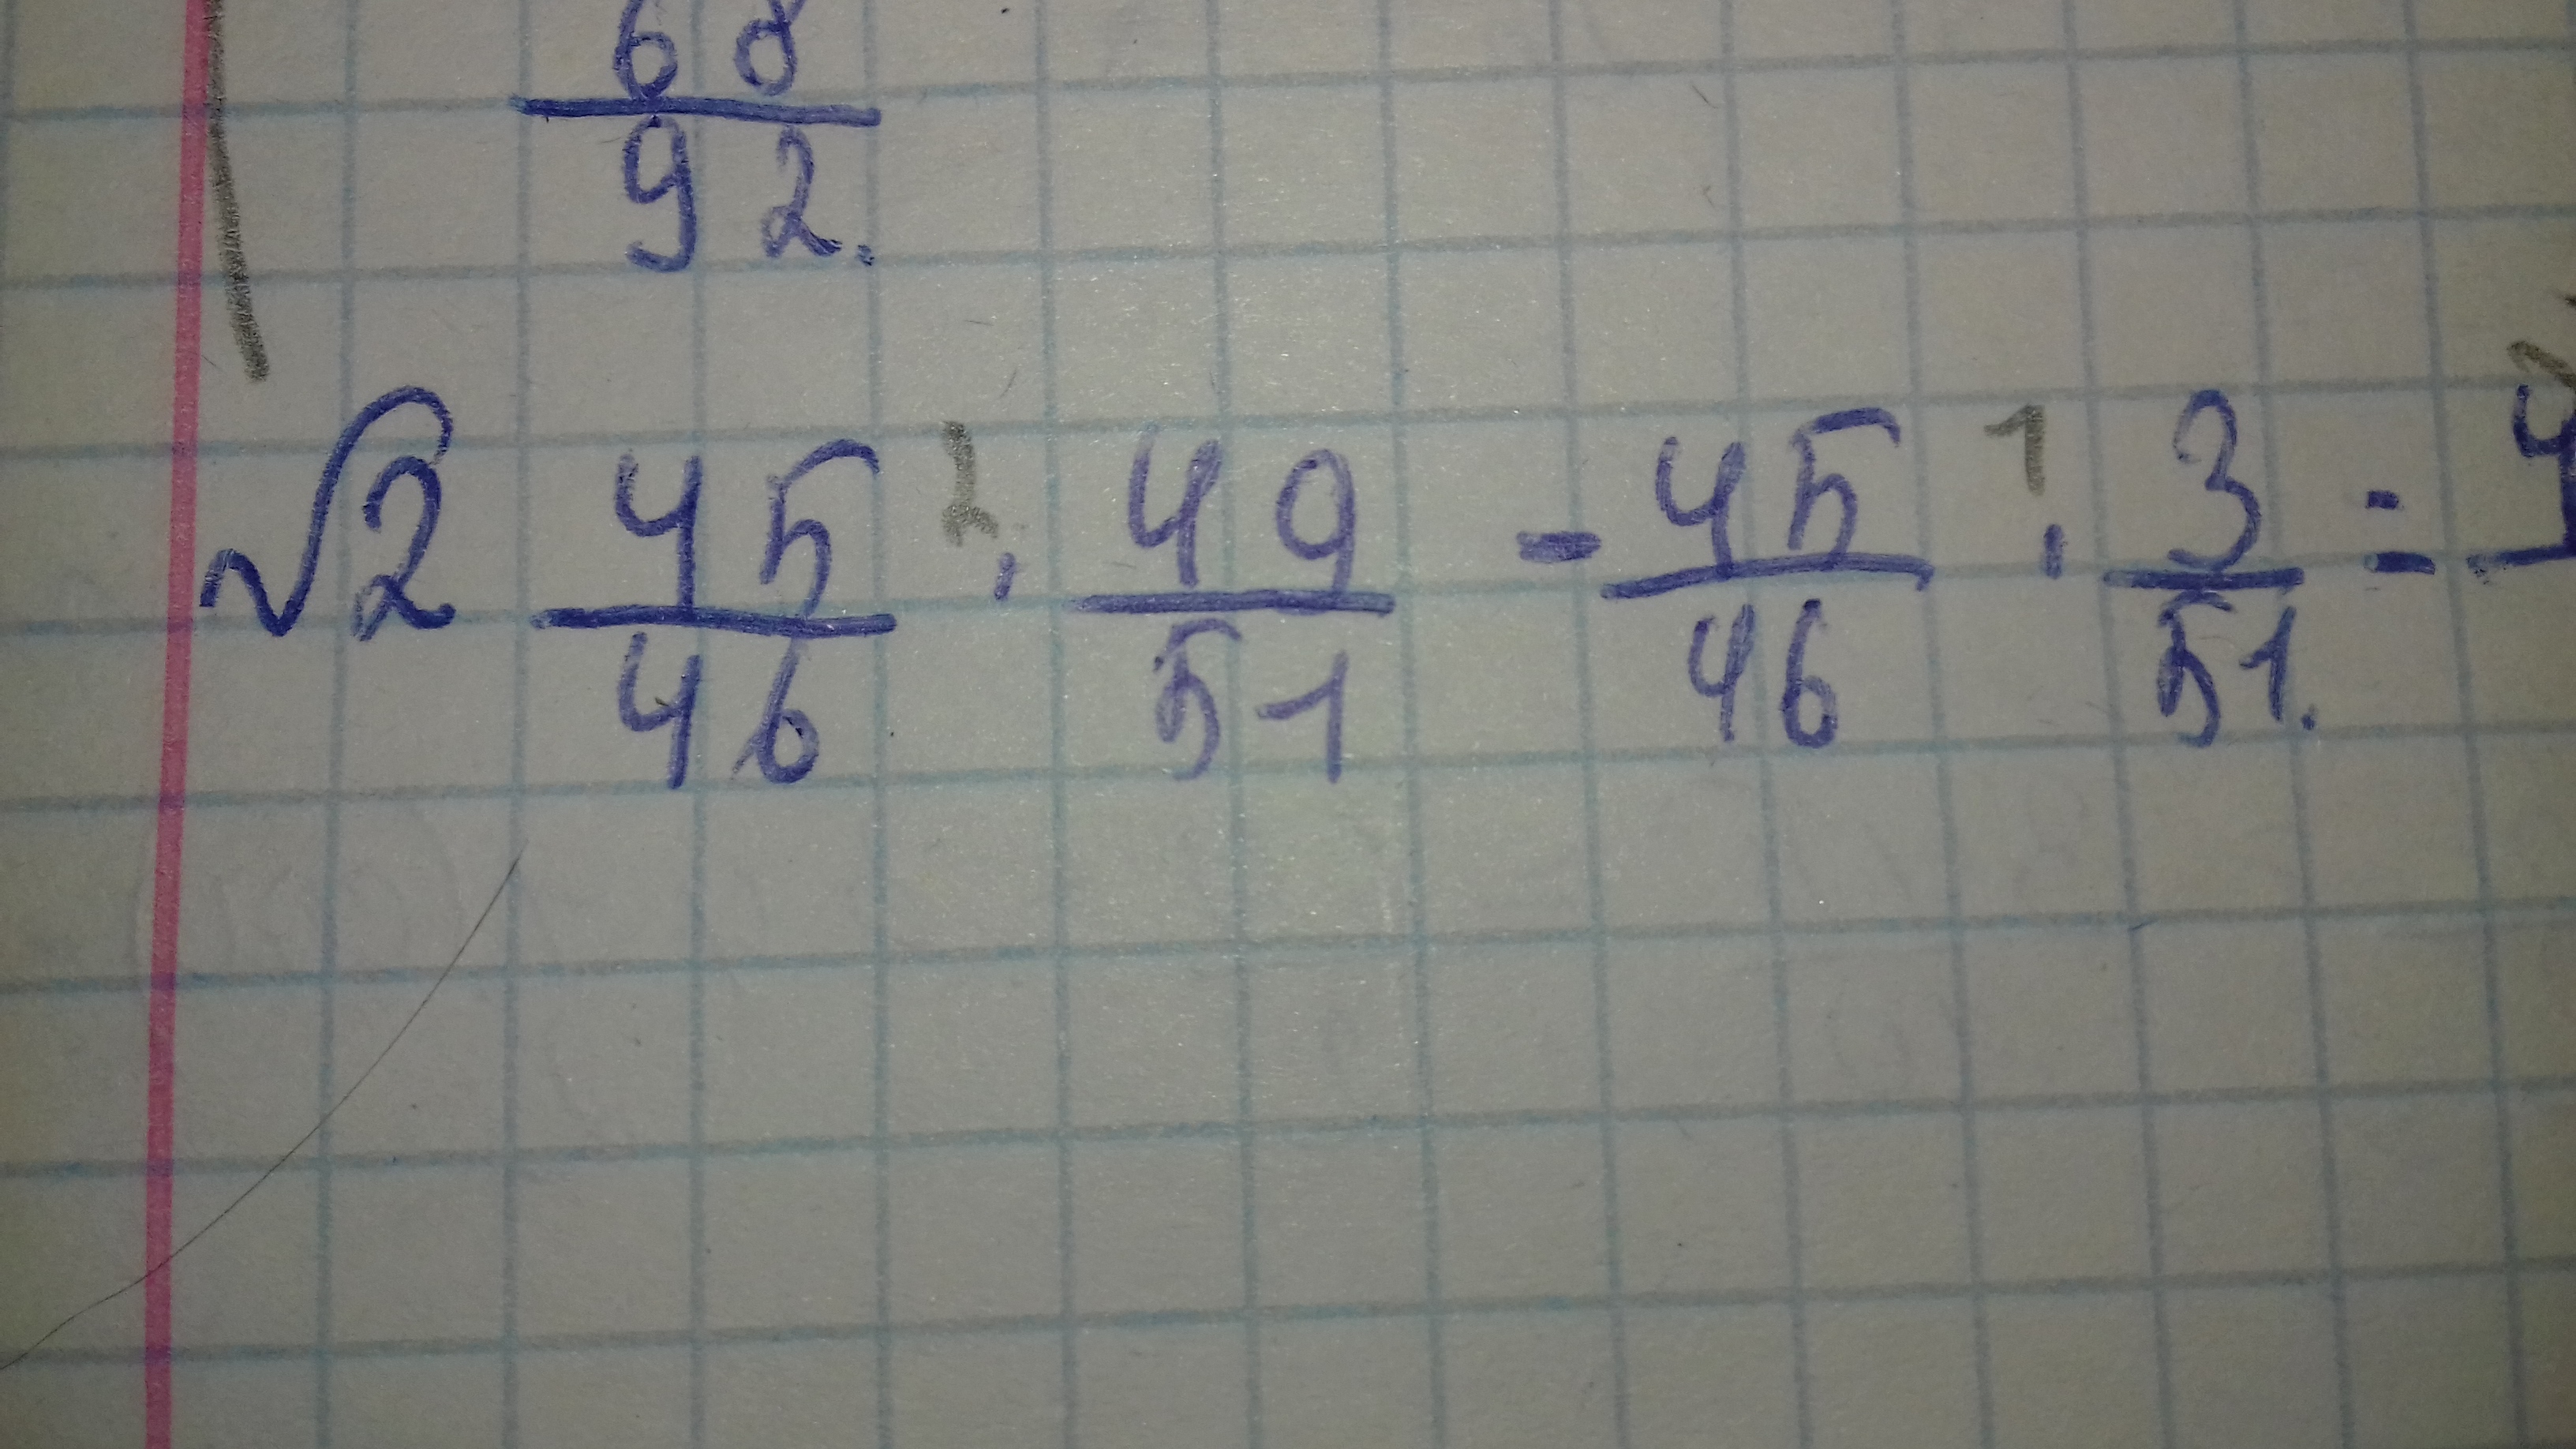 68/92.
√2 45/46 ² · 49/51 - 45/46 ¹ · 3/51. = 4